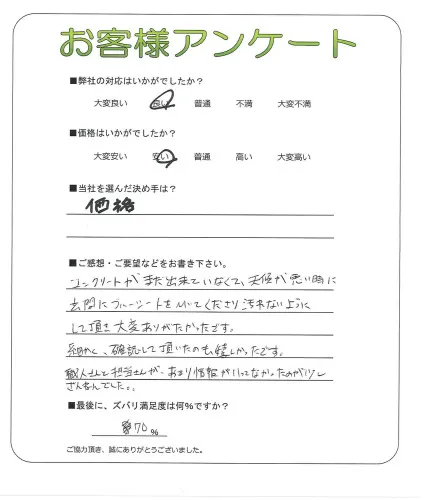 お客様アンケート
■弊社の対応はいかがでしたか？
大変良い 良い 普通 不満 大変不満
■価格はいかがでしたか？
大変安い 安い 普通 高い 大変高い
■当社を選んだ決め手は？
価格
■ご感想・ご要望などをお書き下さい。
コンクリートがまだ出来ていなくて、天候が悪い時に
玄関にブルーシートをひいてくださり汚れないように
して頂き大変ありがたかったです。
細かく、確認して頂いたのも嬉しかったです。
職人さんと担当さんが、あまり情報が入ってなかったのが少し
ざんねんでした。
■最後に、ズバリ満足度は何%ですか？
70%
ご協力頂き、誠にありがとうございました。